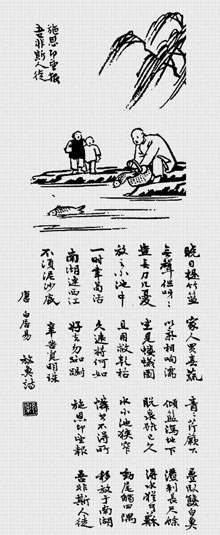 施恩即望报
吾非斯人徒
晓日提竹篮 家人买春蔬 青青芹蕨下 叠卧双白鱼
无声但呀呀 以气相煦濡 倾篮泻地下 泼剌长尺余
岂止刀几忧 坐见蝼蚁图 脱泉虽已久 得水犹可苏
放之小池中 且用救乾枯 水小池狭窄 动尾触四隅
一时幸苟活 久远将何如 怜其不得所 移放于南湖
南湖连西江 好去勿踟蹰 施恩即望报 吾非斯人徒
不须泥沙底 辛苦觅明珠
唐 白居易 放鱼诗